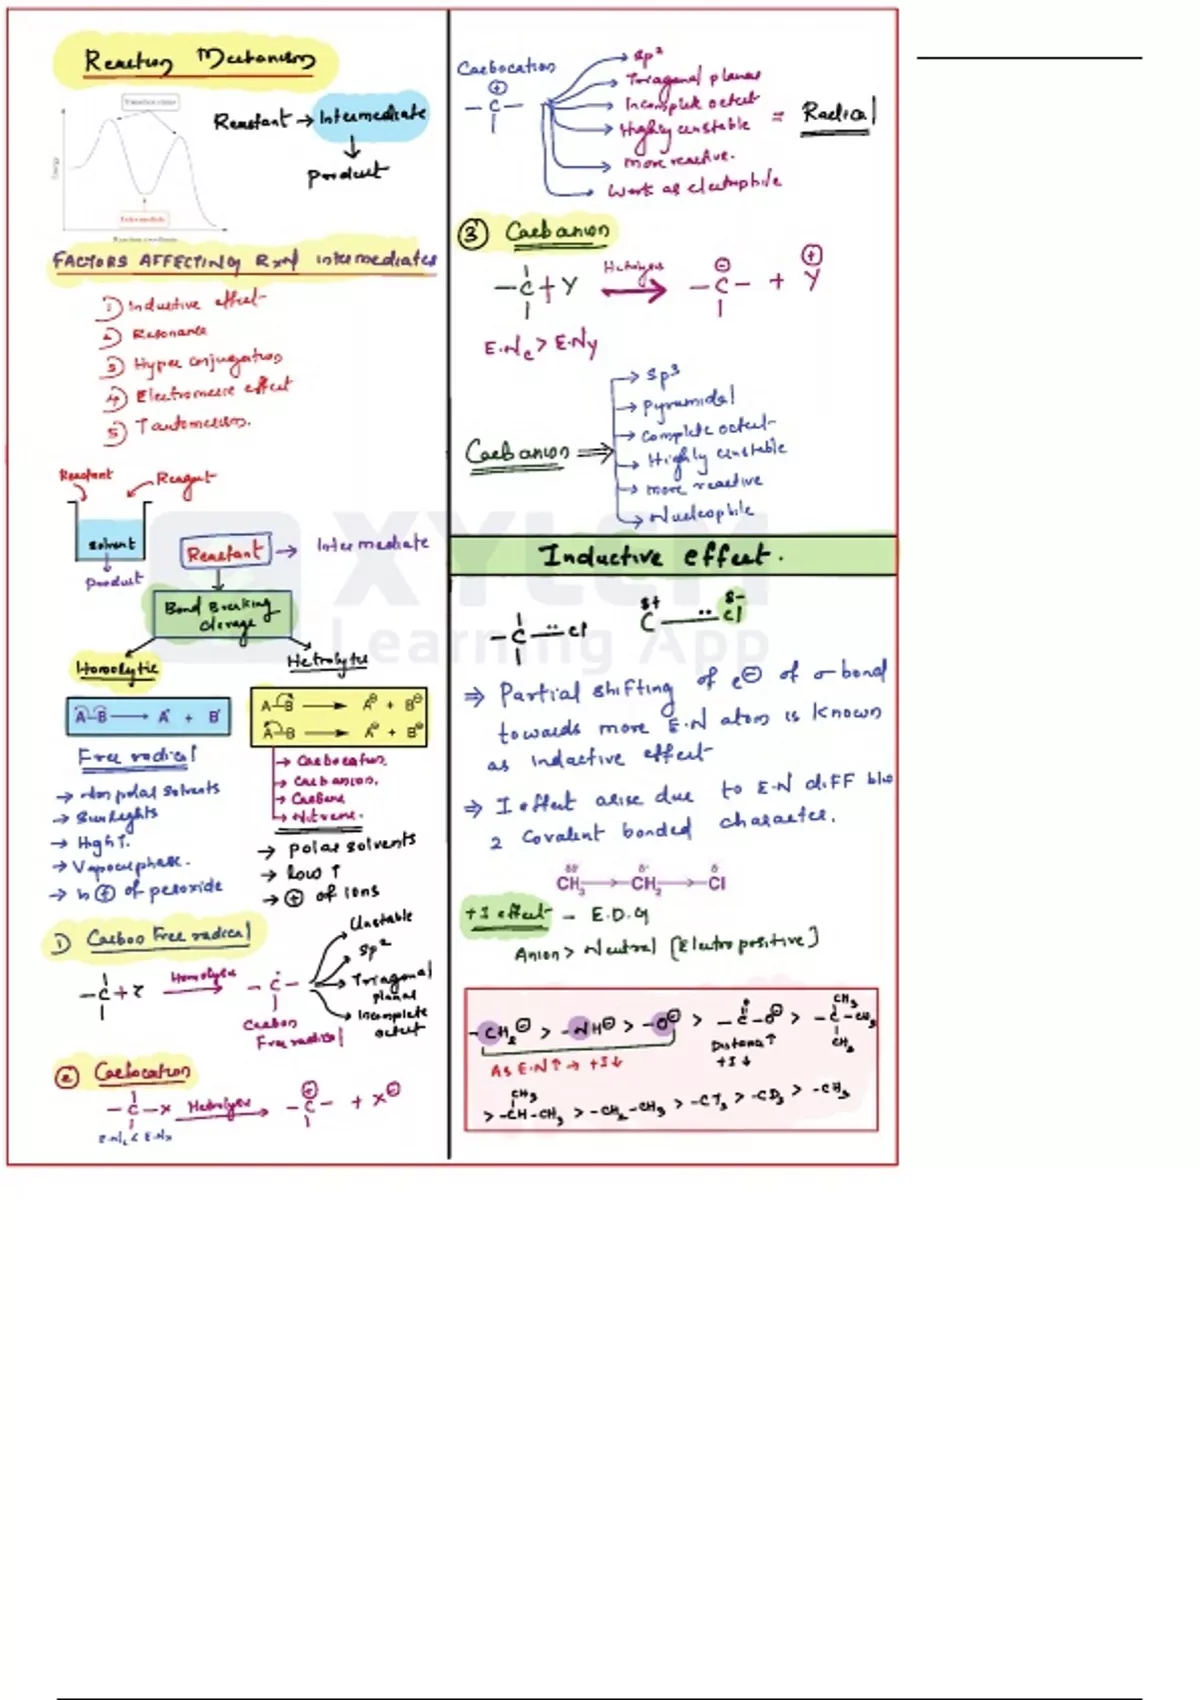 Reaction Mechanism
Transition states
Energy
Intermediate
Reaction coordinate
Reactant → Intermediate
↓
Product
FACTORS AFFECTING Rxn intermediates
1) Inductive effect
2) Resonance
3) Hyper conjugation
4) Electromeric effect
5) Tautomerism.
Reactant
Reagent
Solvent
Product
Reactant → Intermediate
Bond Breaking
Clevage
Homolytic
A-B → A• + B•
Free radical
→ Non polar solvents
→ Sunlights
→ High T.
→ Vapour phase.
→ in ⊕ of peroxide
Hetrolytic
A-B → A⊕ + B⊖
A-B → A⊖ + B⊕
→ Carbocation.
→ Carbanion.
→ Carbene
→ Nitrene.
→ polar solvents
→ low T
→ ⊕ of ions
1) Carbon Free radical
-C+Z Homolysis -C-
Carbon
Free radical
Unstable
Sp²
Triagonal
planar
Incomplete
octet
② Carbocation
-C-X Hetrolysis -C- + X⊖
E.Nc < E.Nx
Carbocation
⊕
-C-
Sp²
Triagonal planar
Incomplete octect
Highly unstable
more reactive.
Work as electrophile
= Radical
③ Carbanion
-C+Y Hetrolysis → -C- + Y
⊖ ⊕
E.Nc > E.Ny
Carbanion ⇒
→ Sp³
→ pyramidal
→ complete octect
→ Highly unstable
→ more reactive
→ Nucleophile
XYLEM
Learning App
Inductive effect.
-C—Cl
δ+ δ-
C — Cl
⇒ Partial shifting of e⊖ of σ-bond
towards more E.N atom is known
as indactive effect
⇒ I effect arise due to E-N diff b/w
2 Covalent bonded character.
CH₃ → CH₂ → Cl
+I effect - E.D.G
Anion > Neutral [Electropositive]
-CH₂⊖ > -NH⊖ > -O⊖ > -C-O⊖ > -C-CH₃
CH₃
CH₃
As E.N↑ → +I↓
Distance↑
+I↓
CH₃
> -CH-CH₃ > -CH₂-CH₃ > -CT₃ > -CD₃ > -CH₃